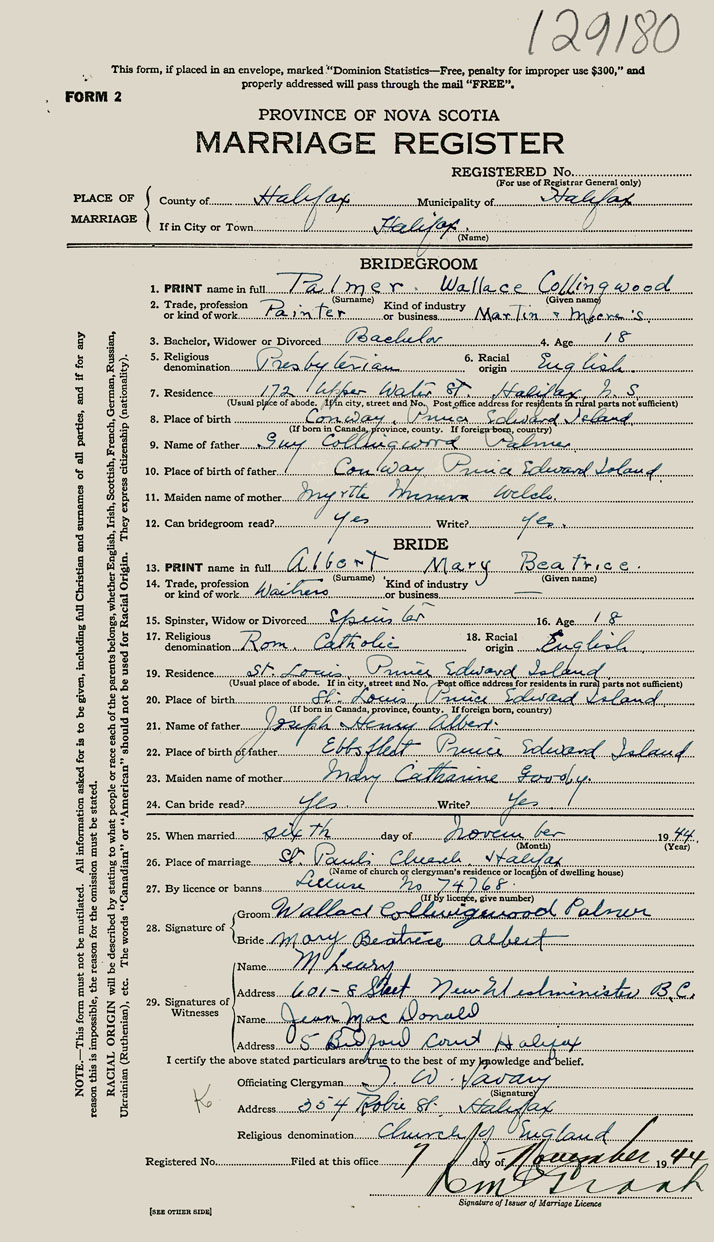 129180
This form, if placed in an envelope, marked "Dominion Statistics—Free, penalty for improper use $300," and
properly addressed will pass through the mail "FREE".
FORM 2
PROVINCE OF NOVA SCOTIA
MARRIAGE REGISTER
REGISTERED No.
(For use of Registrar General only)
PLACE OF MARRIAGE
County of Halifax Municipality of Halifax
If in City or Town Halifax.
(Name)
BRIDEGROOM
1. PRINT name in full Palmer. Wallace Collingwood
(Surname) (Given name)
2. Trade, profession or kind of work Painter Kind of industry or business Martin & Moore's.
3. Bachelor, Widower or Divorced Bachelor 4. Age 18
5. Religious denomination Presbyterian 6. Racial origin English.
7. Residence 172 Upper Water St. Halifax N.S.
(Usual place of abode. If in city, street and No. Post office address for residents in rural parts not sufficient)
8. Place of birth Conway, Prince Edward Island
(If born in Canada, province, county. If foreign born, country)
9. Name of father Guy Collingwood Palmer
10. Place of birth of father Conway Prince Edward Island.
11. Maiden name of mother Myrtle Minerva Welch.
12. Can bridegroom read? Yes Write? Yes.
BRIDE
13. PRINT name in full Albert Mary Beatrice.
(Surname) (Given name)
14. Trade, profession or kind of work Waitress Kind of industry or business —
15. Spinster, Widow or Divorced Spinster 16. Age 18
17. Religious denomination Rom. Catholic 18. Racial origin English.
19. Residence St. Louis, Prince Edward Island
(Usual place of abode. If in city, street and No. Post office address for residents in rural parts not sufficient)
20. Place of birth St. Louis, Prince Edward Island.
(If born in Canada, province, county. If foreign born, country)
21. Name of father Joseph Henry Albert.
22. Place of birth of father Ebbsfleet Prince Edward Island
23. Maiden name of mother Mary Catharine
24. Can bride read? Yes. Write? Yes.
25. When married sixth day of November 1944.
(Month) (Year)
26. Place of marriage St. Pauls Church, Halifax
(Name of church or clergyman's residence or location of dwelling house)
27. By licence or banns License No 74768.
(If by licence, give number)
28. Signature of
Groom Wallace Collingwood Palmer
Bride Mary Beatrice Albert
29. Signatures of Witnesses
Name M Leary
Address 601-8 Street New Westminister B.C.
Name Jean MacDonald
Address 5 Bedford Court Halifax
I certify the above stated particulars are true to the best of my knowledge and belief.
Officiating Clergyman W. Savary
(Signature)
Address 354 Robie St. Halifax
Religious denomination Church of England
Registered No. Filed at this office 7 day of November 1944
Signature of Issuer of Marriage Licence
[SEE OTHER SIDE]
K
NOTE.—This form must not be mutilated. All information asked for is to be given, including full Christian and surnames of all parties, and if for any
reason this is impossible, the reason for the omission must be stated.
RACIAL ORIGIN will be described by stating to what people or race each of the parents belongs, whether English, Irish, Scottish, French, German, Russian,
Ukrainian (Ruthenian), etc. The words "Canadian" or "American" should not be used for Racial Origin. They express citizenship (nationality).